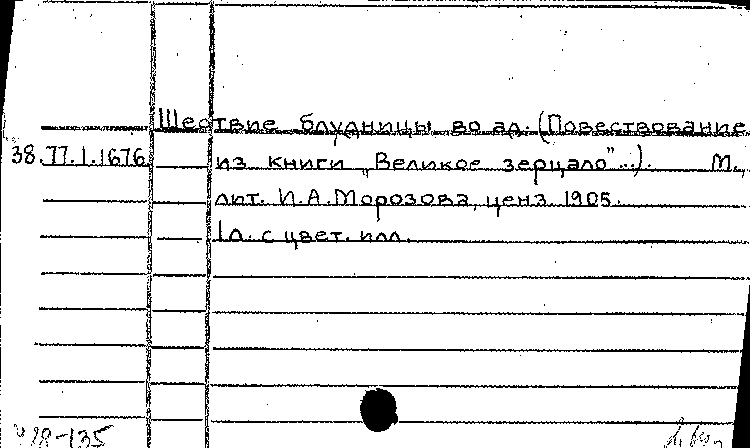 Шествие блудницы во ад. (Повествование
38.77.1.1676 из книги „Великое зерцало"...). М.,
лит. И.А.Морозова, ценз. 1905.
1л. с цвет. илл.